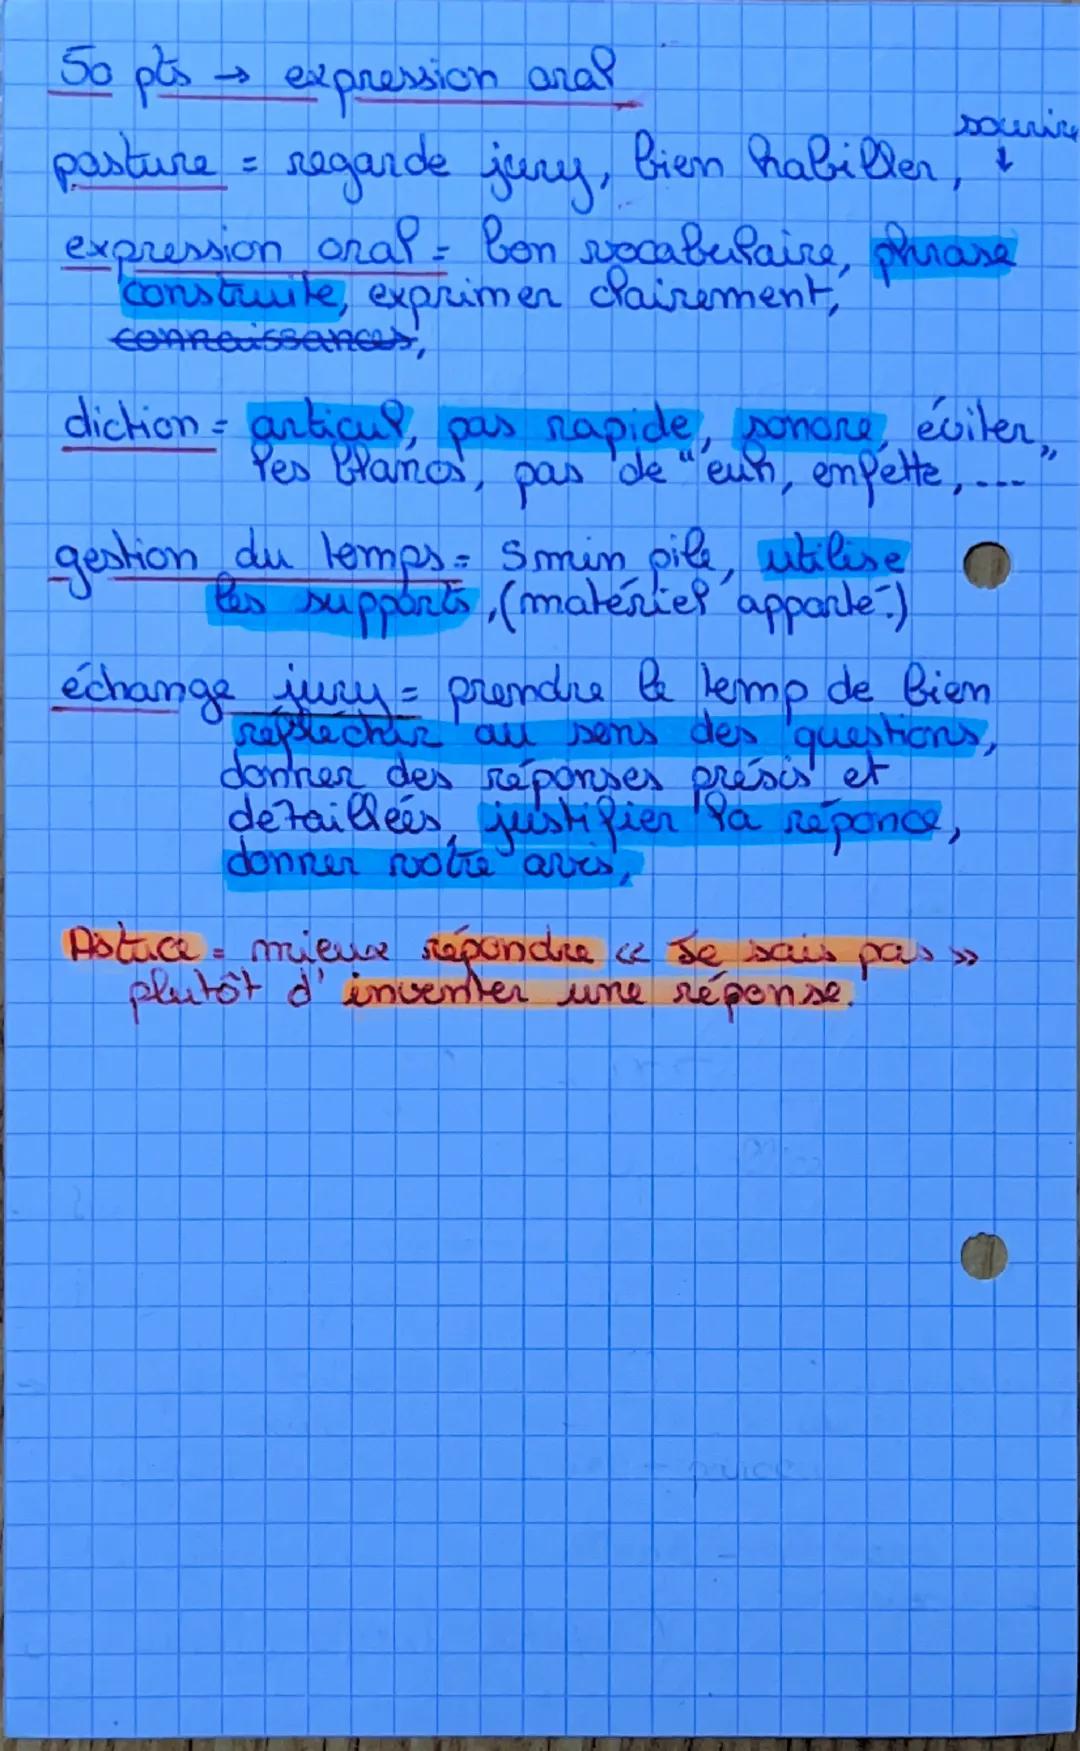 50 pts → expression oral
sourire
↓
posture = regarde jury, bien habiller,
expression oral = bon vocabulaire, phrase
construite, exprimer clairement,
connaissances,
diction = articul, pas rapide, sonore, éviter
les blancs, pas de "euh, enfette, ..."
gestion du temps = 5 min pile, utilise
les supports, (matériel apporté.)
échange jury = prendre le temp de bien
réflechir au sens des questions,
donner des réponses présis et
détaillées, justifier la réponce,
donner votre avis,
Astuce = mieux répondre « Je sais pas »
plutôt d'inventer une réponse.